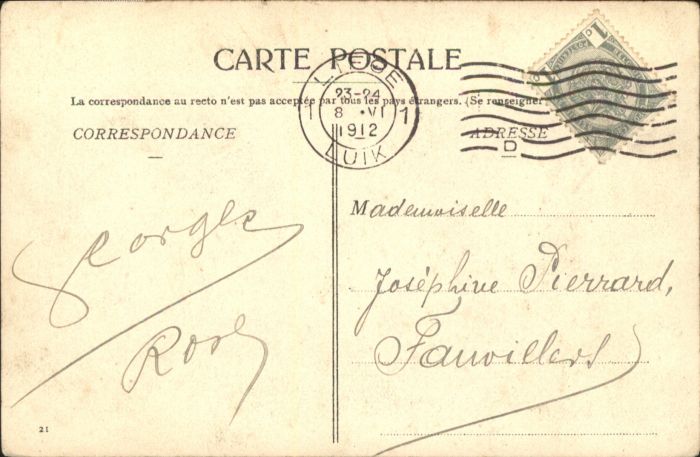 CARTE POSTALE
La correspondance au recto n'est pas acceptée par tous les pays étrangers. (Se renseigner
CORRESPONDANCE
ADRESSE
LIEGE
23-24
1 8 VI 1
1912
LUIK
D
1
Mademoiselle
Joséphine Pierrard,
Fauvillers
Georges
21